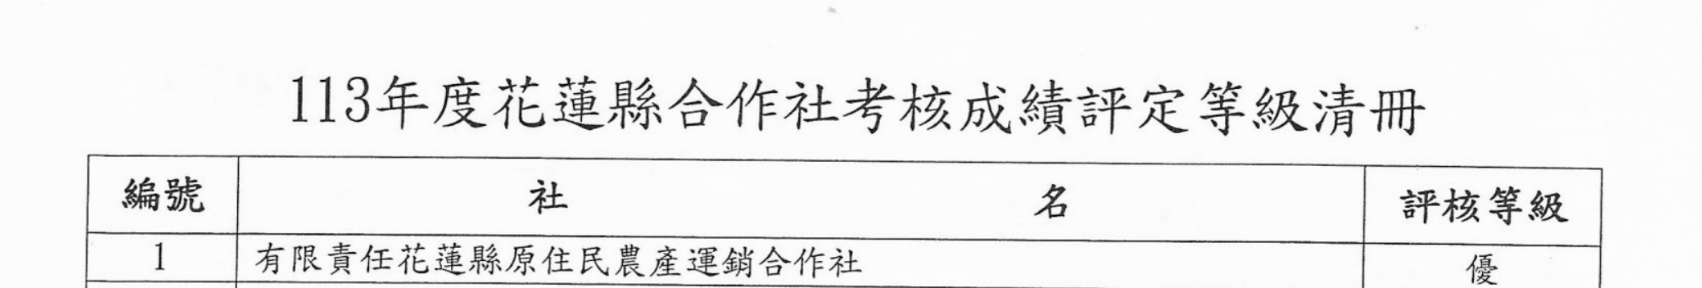 113年度花蓮縣合作社考核成績評定等級清冊
編號 社 名 評核等級
1 有限責任花蓮縣原住民農產運銷合作社 優